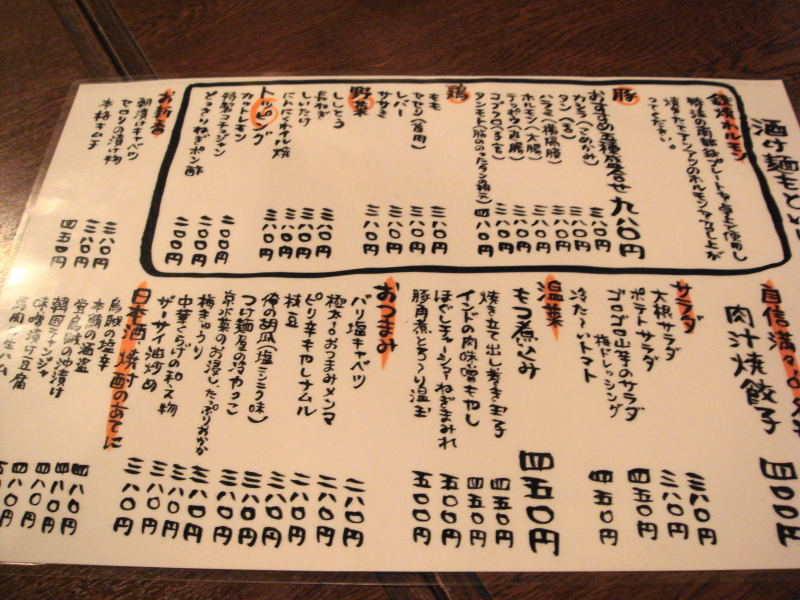 酒け麺もといし
鉄焼ホルモン
豚
おすすめ五種盛合せ 九八〇円
カシラ（こめかみ） 三八〇円
タン（舌） 三八〇円
ハラミ（横隔膜） 三八〇円
ホルモン（大腸） 三八〇円
テッポウ（直腸） 三八〇円
コブクロ（子宮） 三八〇円
四八〇円
鶏
もも 三八〇円
セセリ（首肉） 三八〇円
レバー 三八〇円
ササミ 三八〇円
野菜
ししとう 三八〇円
長ねぎ 三八〇円
しいたけ 三八〇円
にんにくオイル焼 三八〇円
トッピング
カットレモン 一〇〇円
特製コチュジャン 一〇〇円
どっさりねぎポン酢 二〇〇円
お新香
朝漬けキャベツ 三八〇円
セロリの漬け物 三八〇円
本格キムチ 四五〇円
自信満々
肉汁焼餃子 四〇〇円
サラダ
大根サラダ 三八〇円
ポテトサラダ 三八〇円
ゴロゴロ山芋のサラダ 四五〇円
梅ドレッシング
冷た〜いトマト 四五〇円
温菜
もつ煮込み 四五〇円
焼き立て出し巻き玉子 四五〇円
インドの肉味噌もやし 四五〇円
ほぐしチャーシューねぎまみれ 五〇〇円
豚角煮とろ〜り温玉 五〇〇円
おつまみ
バリ塩キャベツ 二八〇円
極太！おつまみメンマ 二八〇円
ピリ辛もやしナムル 二八〇円
枝豆 三八〇円
俺の胡瓜（塩ニンニク味） 三八〇円
つけ麺屋の冷やっこ 三八〇円
京水菜のお浸し、たっぷりおかか 三八〇円
梅きゅうり 三八〇円
中華くらげの和え物 三八〇円
ザーサイ油炒め 三八〇円
日本酒・焼酎 酒のあてに
烏賊の塩辛 四八〇円
本鮪の酒盗 四八〇円
蛍烏賊の沖漬け 四八〇円
韓国チャンジャ 四八〇円
味噌漬け豆腐
馬肉の生ハム